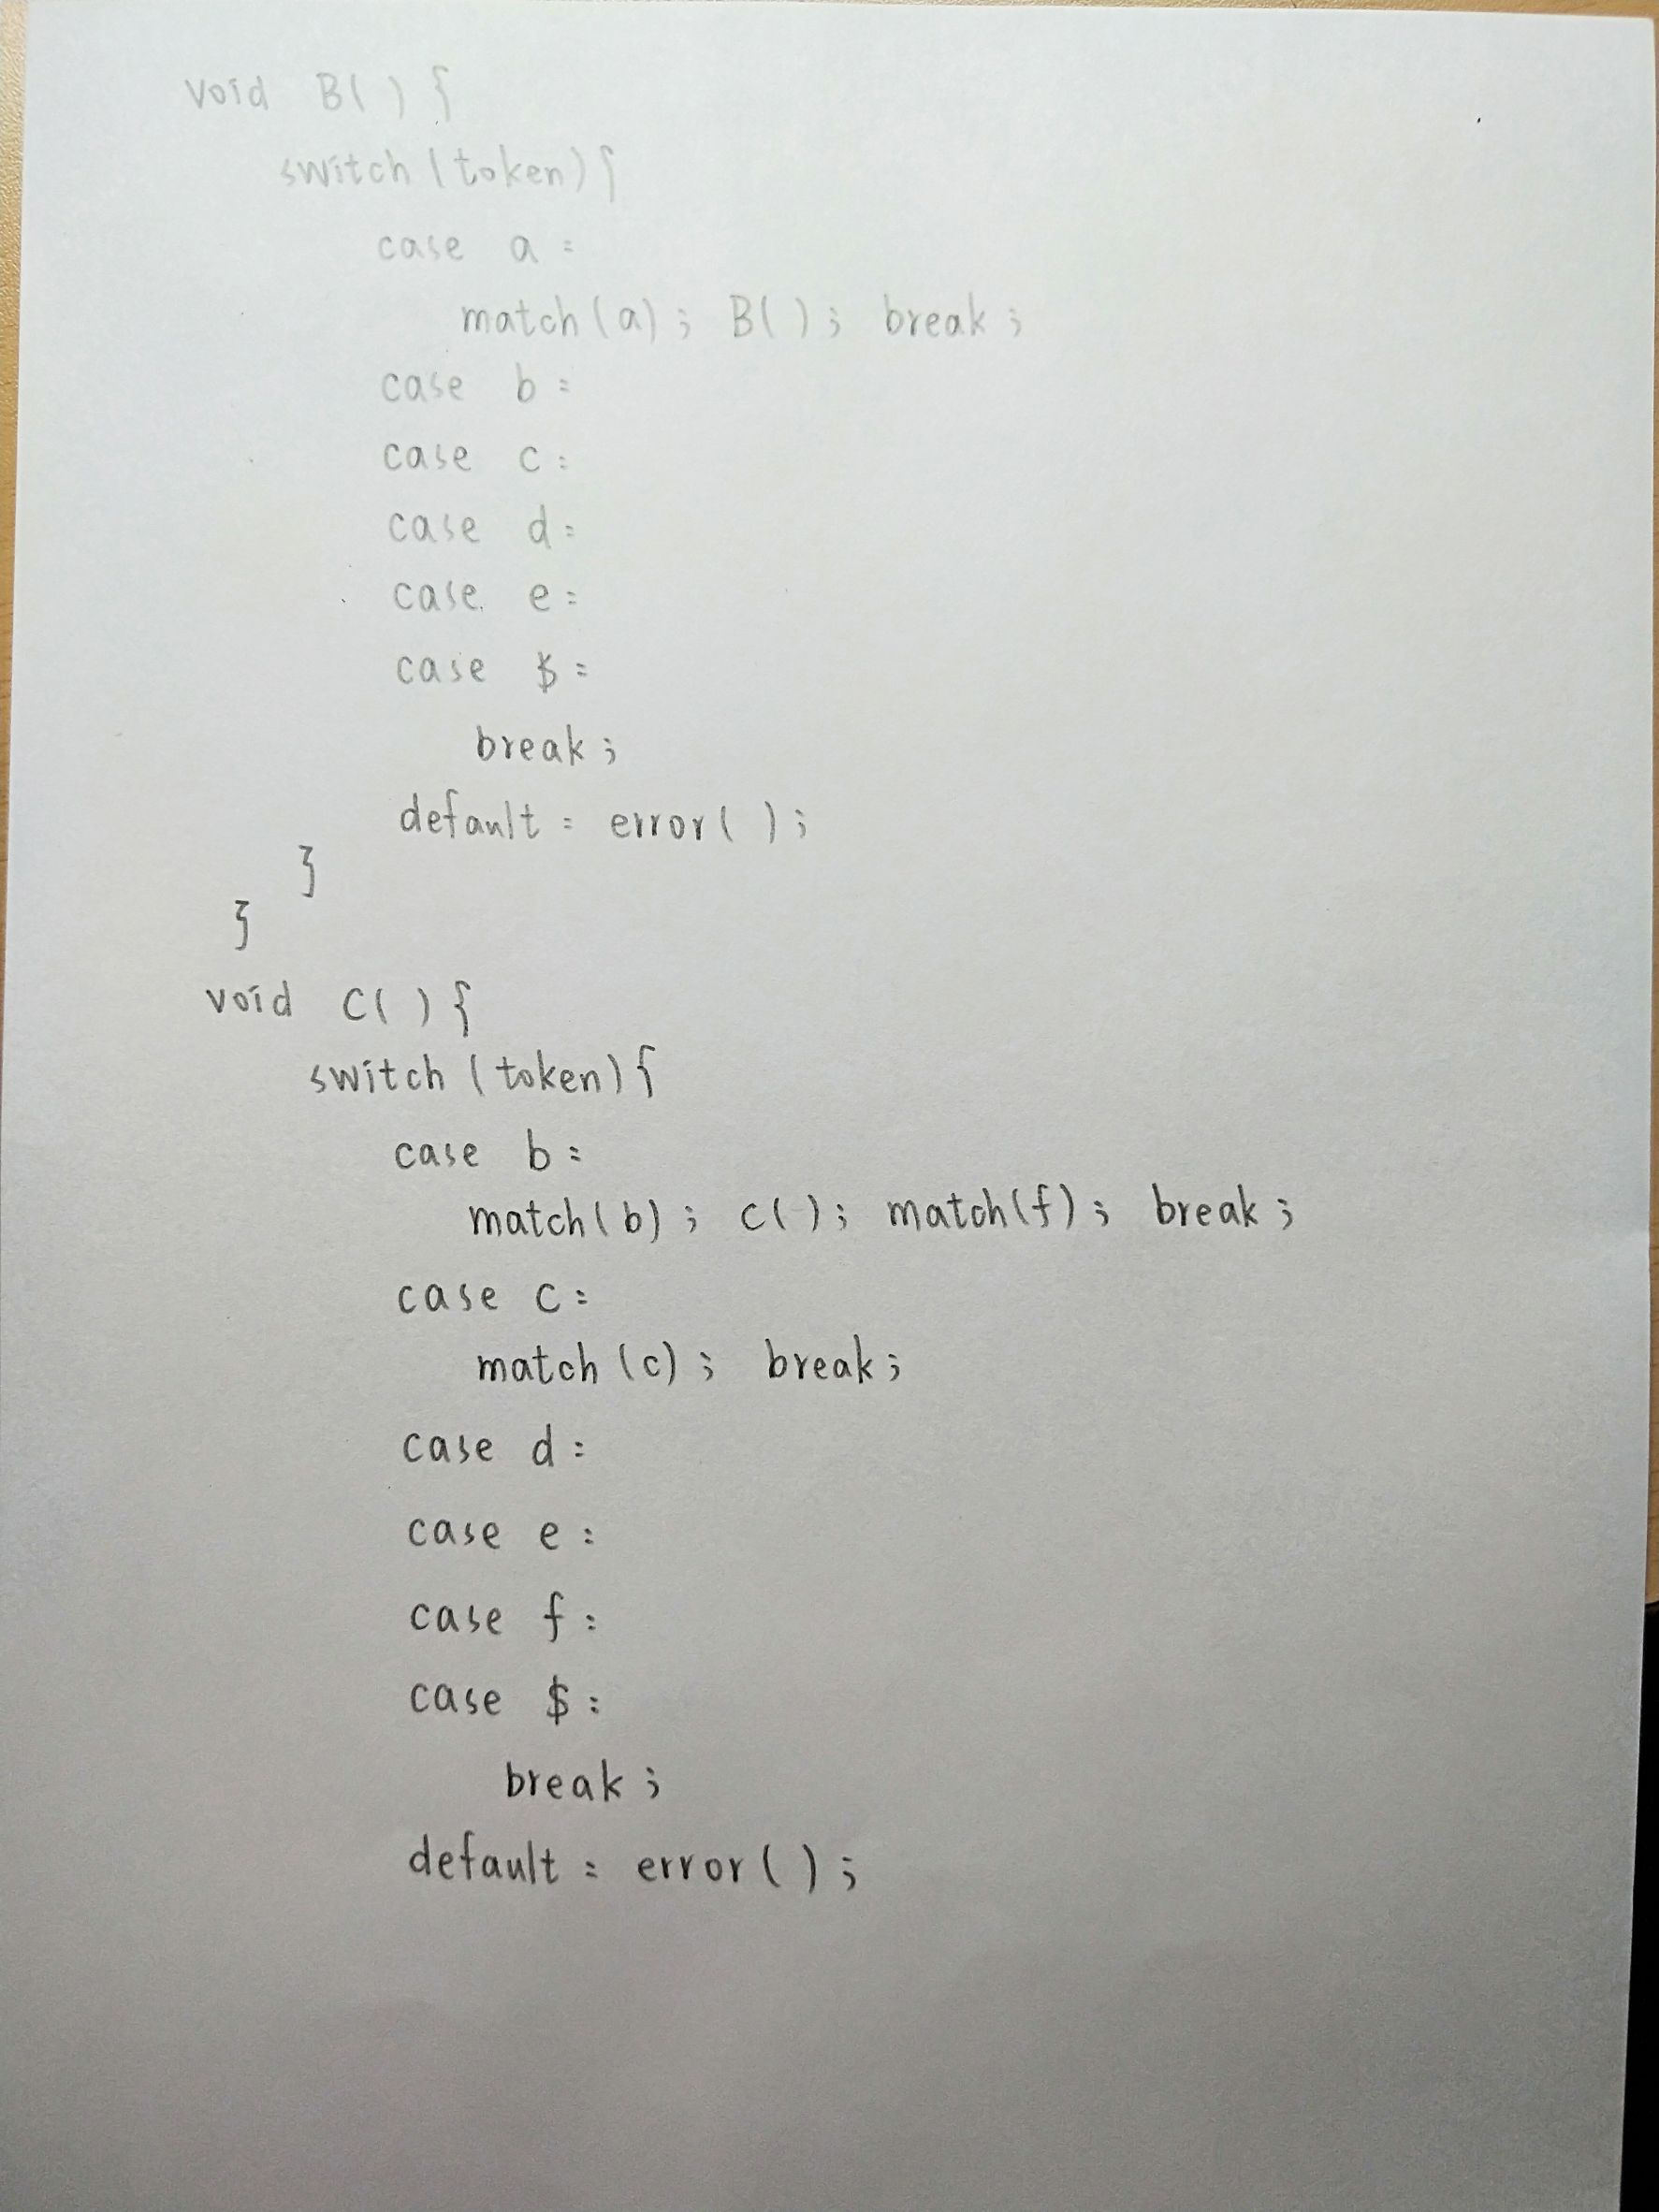 void B( ) {
switch (token) {
case a :
match (a) ; B( ) ; break ;
case b :
case c :
case d :
case e :
case $ :
break ;
default : error( ) ;
}
}
void C( ) {
switch (token) {
case b :
match (b) ; C( ) ; match (f) ; break ;
case c :
match (c) ; break ;
case d :
case e :
case f :
case $ :
break ;
default : error ( ) ;